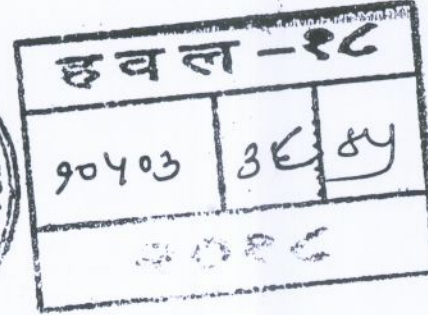 हवल-१८
१०५०३ ३६ ७५
२०१८